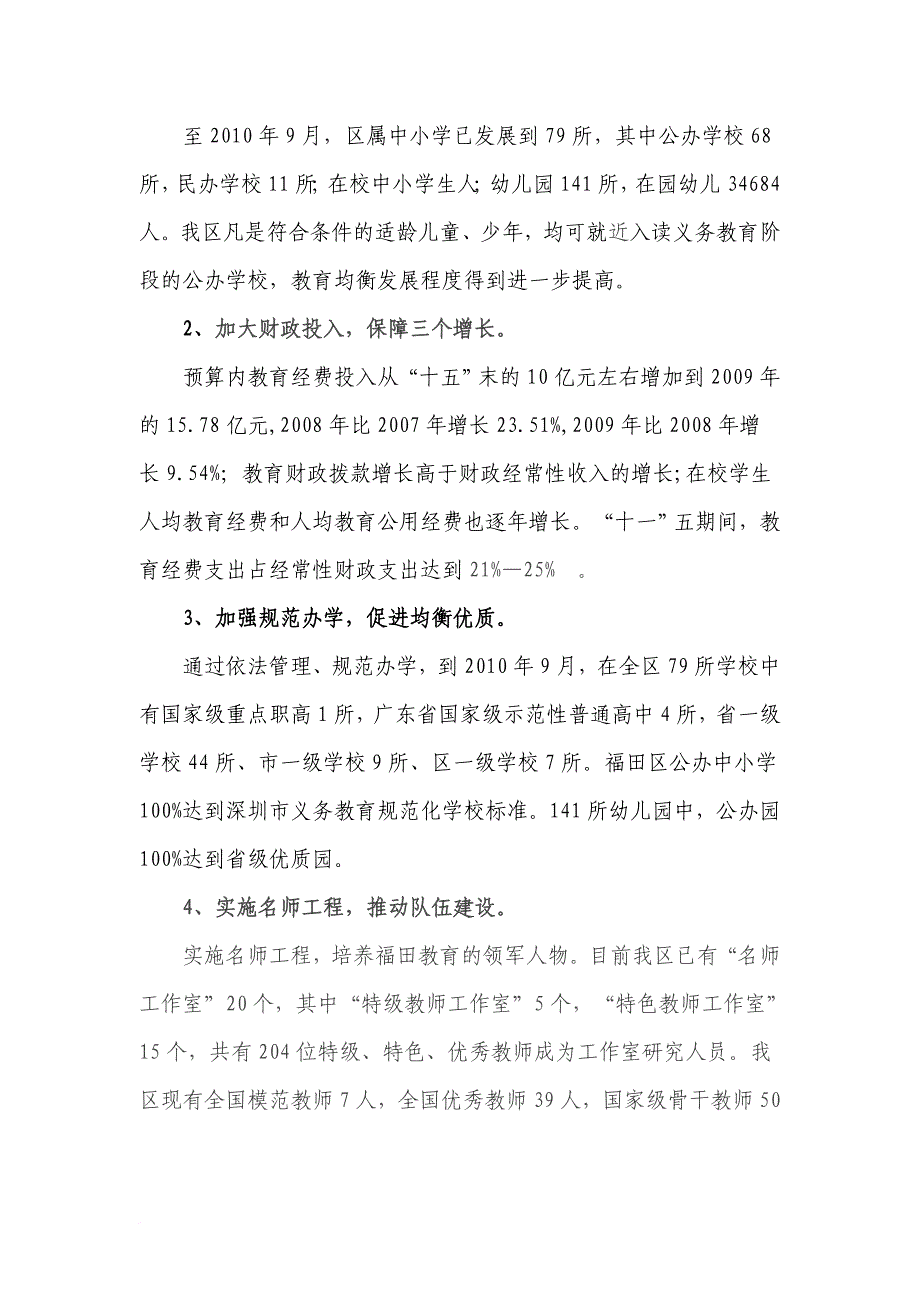 至 2010 年 9 月，区属中小学已发展到 79 所，其中公办学校 68
所，民办学校 11 所；在校中小学生人；幼儿园 141 所，在园幼儿 34684
人。我区凡是符合条件的适龄儿童、少年，均可就近入读义务教育阶
段的公办学校，教育均衡发展程度得到进一步提高。
2、加大财政投入，保障三个增长。
预算内教育经费投入从“十五”末的 10 亿元左右增加到 2009 年
的 15.78 亿元,2008 年比 2007 年增长 23.51%,2009 年比 2008 年增
长 9.54%；教育财政拨款增长高于财政经常性收入的增长;在校学生
人均教育经费和人均教育公用经费也逐年增长。“十一”五期间，教
育经费支出占经常性财政支出达到 21%—25% 。
3、加强规范办学，促进均衡优质。
通过依法管理、规范办学，到 2010 年 9 月，在全区 79 所学校中
有国家级重点职高 1 所，广东省国家级示范性普通高中 4 所，省一级
学校 44 所、市一级学校 9 所、区一级学校 7 所。福田区公办中小学
100%达到深圳市义务教育规范化学校标准。141 所幼儿园中，公办园
100%达到省级优质园。
4、实施名师工程，推动队伍建设。
实施名师工程，培养福田教育的领军人物。目前我区已有“名师
工作室”20 个，其中“特级教师工作室”5 个，“特色教师工作室”
15 个，共有 204 位特级、特色、优秀教师成为工作室研究人员。我
区现有全国模范教师 7 人，全国优秀教师 39 人，国家级骨干教师 50